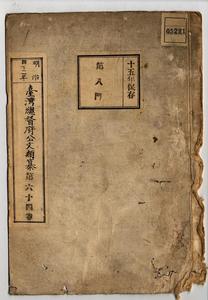 05221
十五年保存
第八門
明治
四十三年
臺灣總督府公文類纂第六十四卷